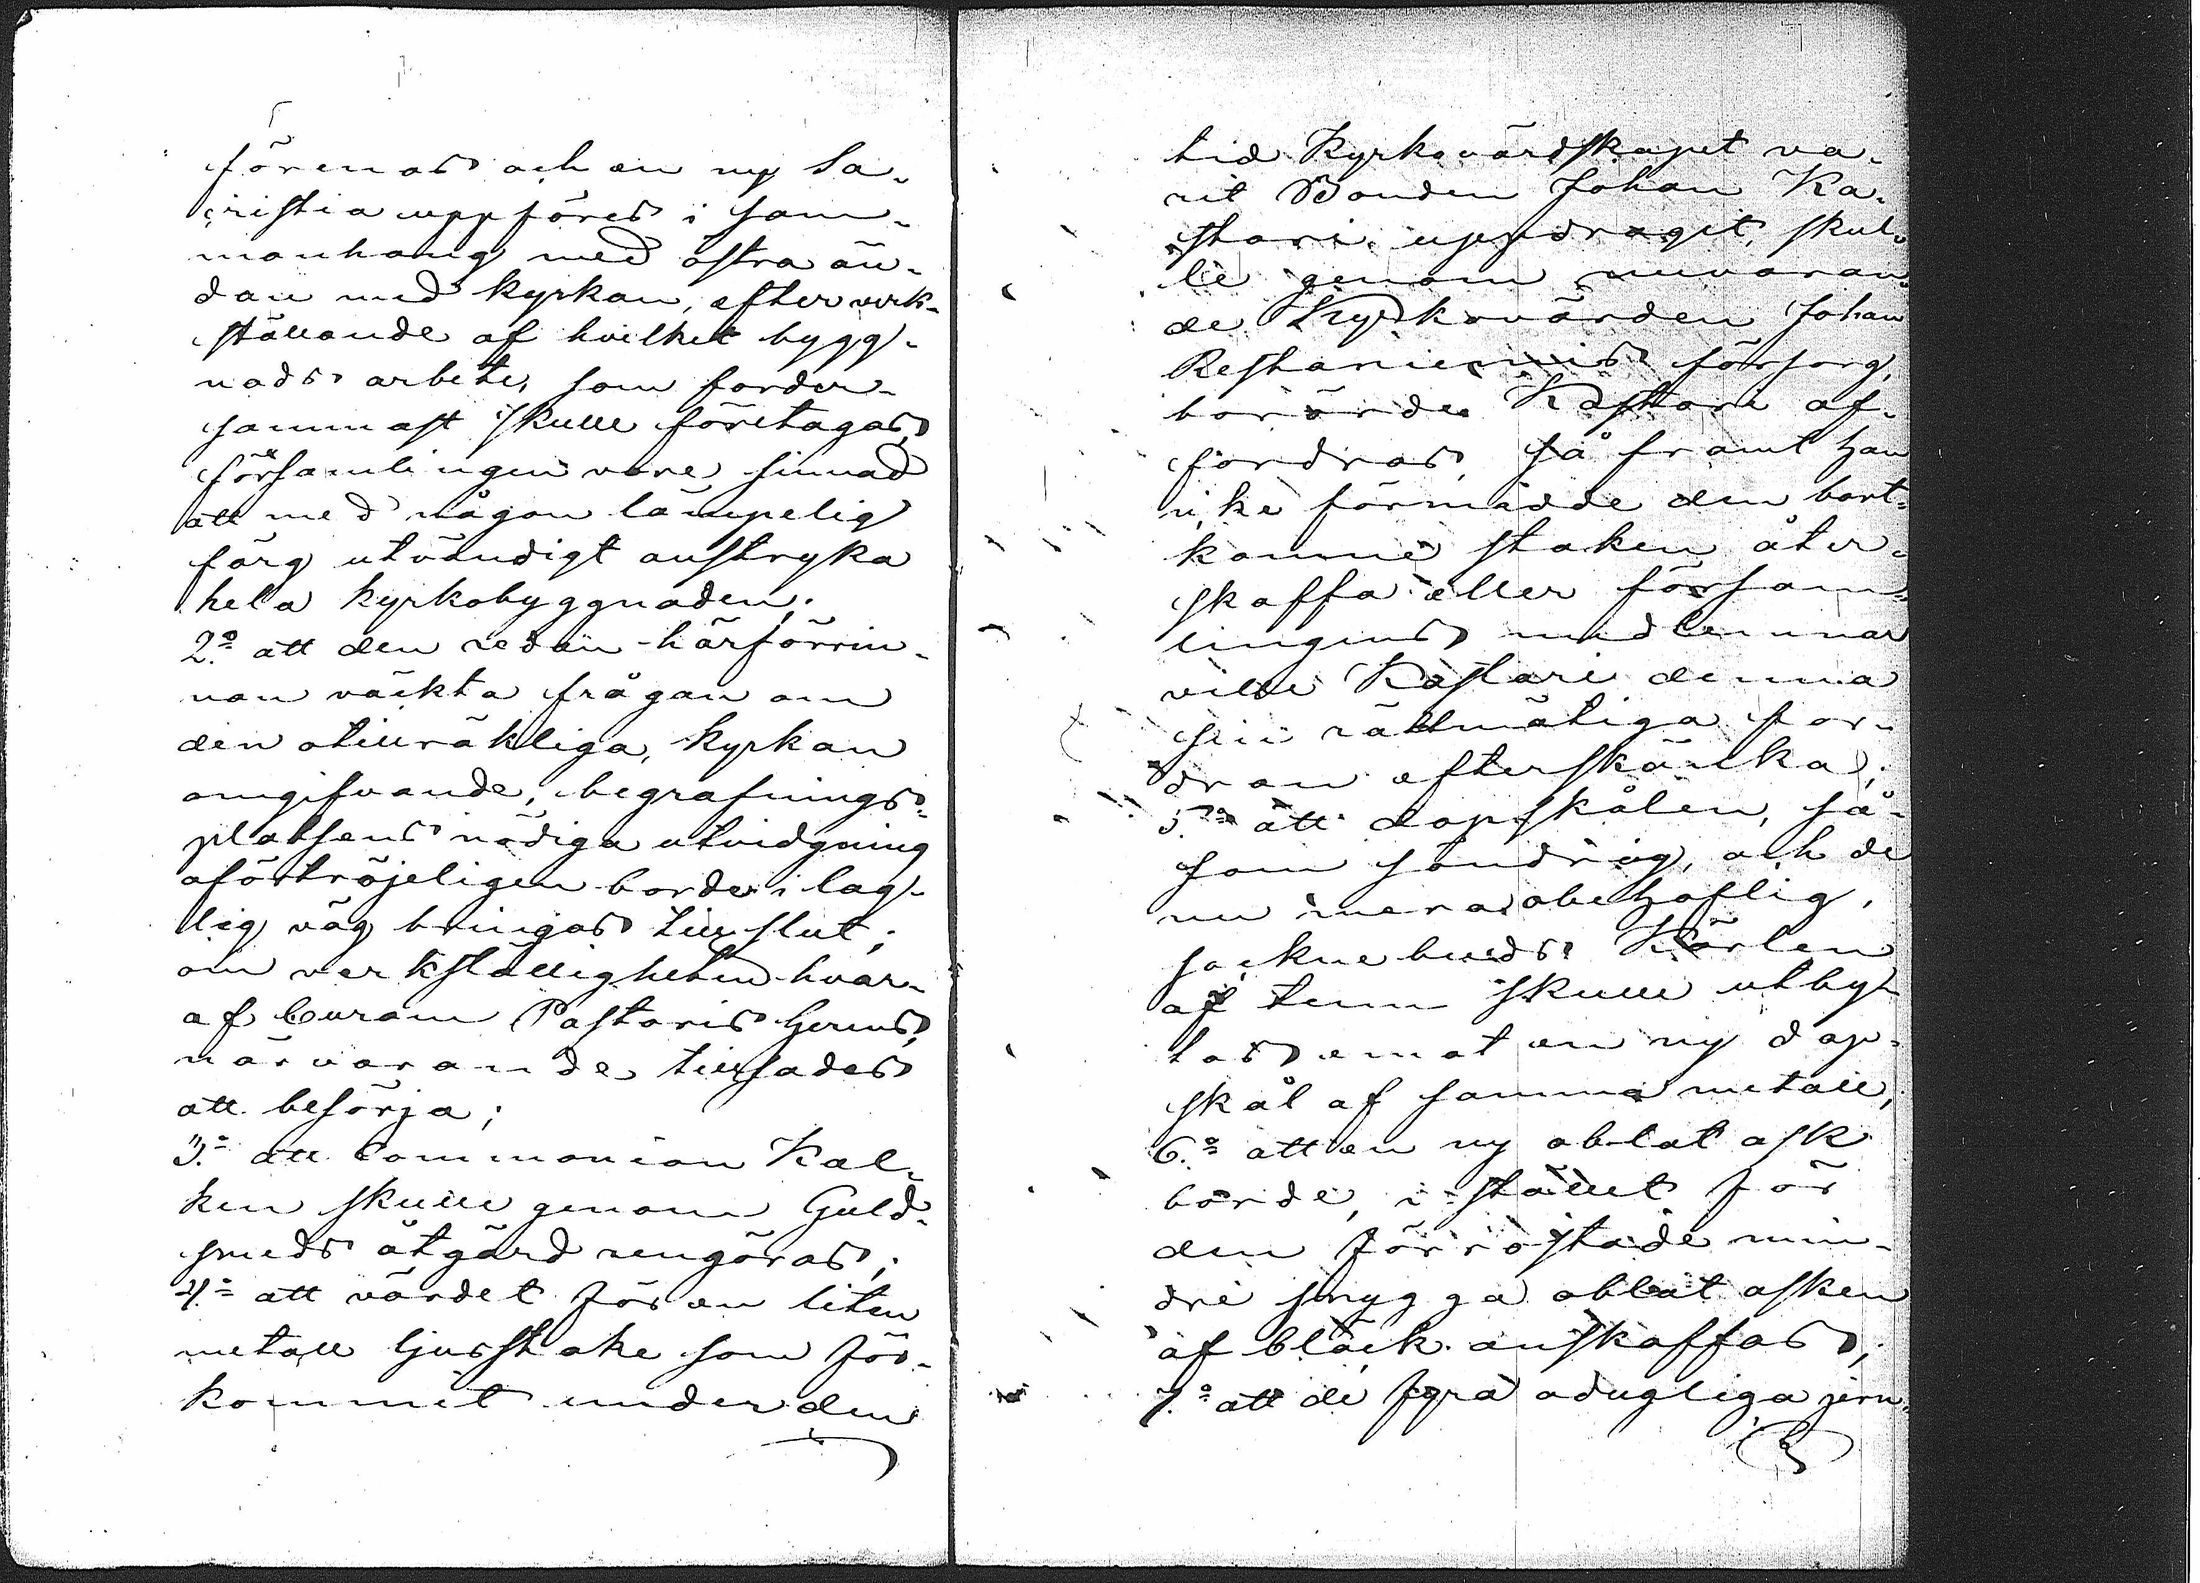 förenas och en ny Sa-
cristia uppföres i sam-
manhang med östra än-
dan med kyrkan, efter verk-
ställande af hvilket bygg-
nads arbete, som forder-
sammast skulle företagas,
församlingen vore sinnad
att med någon lämpelig
färg utvändigt anstryka
hela kyrkobyggnaden;
2:o att den redan härförrin-
nan väckta frågan om
den otillräkliga, kyrkan
omgifvande, begrafnings-
platsens nödiga utvidgning
oförtröjeligen borde i lag-
lig väg bringas till slut;
om verkställigheten hvar-
af Curam Pastoris Gerens,
närvarande tillsades
att besörja;
3:o att Communion Kal-
ken skulle genom Guld-
smeds åtgärd rengöras;
4:o att värdet för en liten
metall ljusstake som för-
kommit under den
tid Kyrkovärdskapet va-
rit Bonden Johan Ka-
stari uppdraget, skul-
le genom nuvaran-
de Kyrkovärden Johan
Restaniemis försorg,
berörde Kastari af-
fordras, så framt han
icke förmådde den bort-
komne staken åter-
skaffa eller försam-
lingens medlemmar
ville Kastari denna
sin rättmätiga for-
dran efterskänka;
5:o att dopskålen, så-
som söndrig, och de
nu mera obehoflig,
sockne buds Kärlen
af tenn skulle utby-
tas emot en ny dop-
skål af samma metall,
6:o att en ny oblat ask
borde, i stället för
den förrostade min-
dre snygga oblat asken
af bläck anskaffas;
7:o att de fyra odugliga jern-